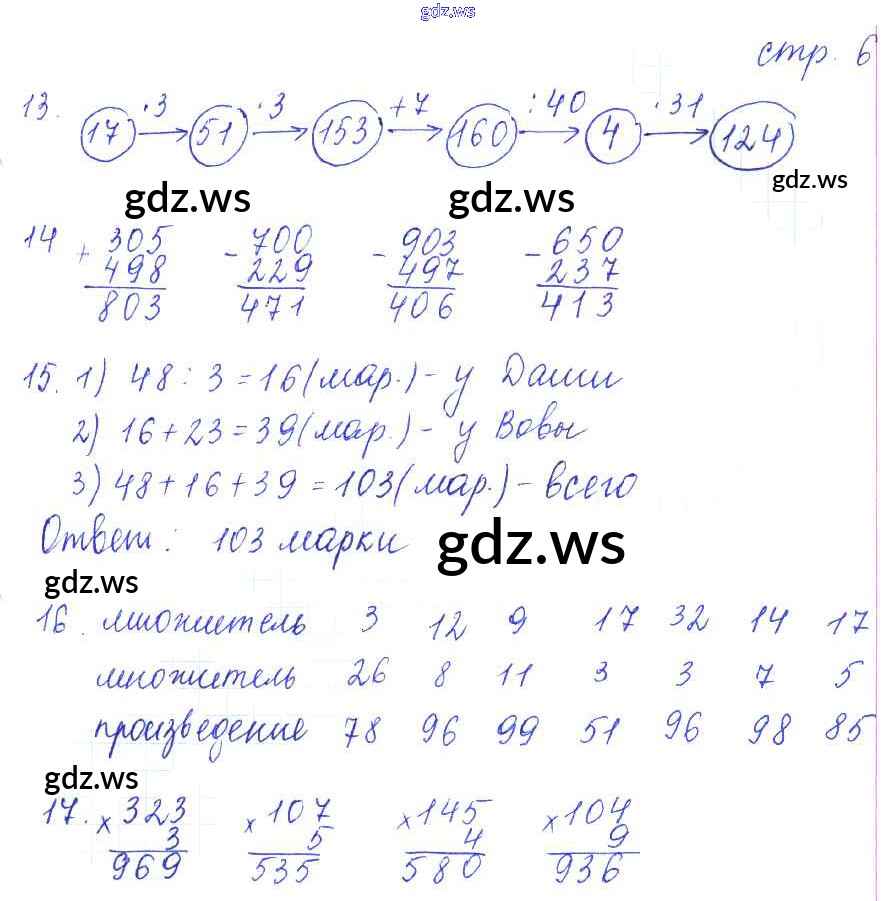 gdz.ws
стр. 6
13. 17 ·3 → 51 ·3 → 153 +7 → 160 :40 → 4 ·31 → 124
gdz.ws gdz.ws gdz.ws
14 + 305 - 700 - 903 - 650
498 229 497 237
803 471 406 413
15. 1) 48 : 3 = 16 (мар.) - у Даши
2) 16 + 23 = 39 (мар.) - у Вовы
3) 48 + 16 + 39 = 103 (мар.) - всего
Ответ: 103 марки gdz.ws
gdz.ws
16. множитель 3 12 9 17 32 14 17
множитель 26 8 11 3 3 7 5
произведение 78 96 99 51 96 98 85
gdz.ws
17. × 323 × 107 × 145 × 104
3 5 4 9
969 535 580 936